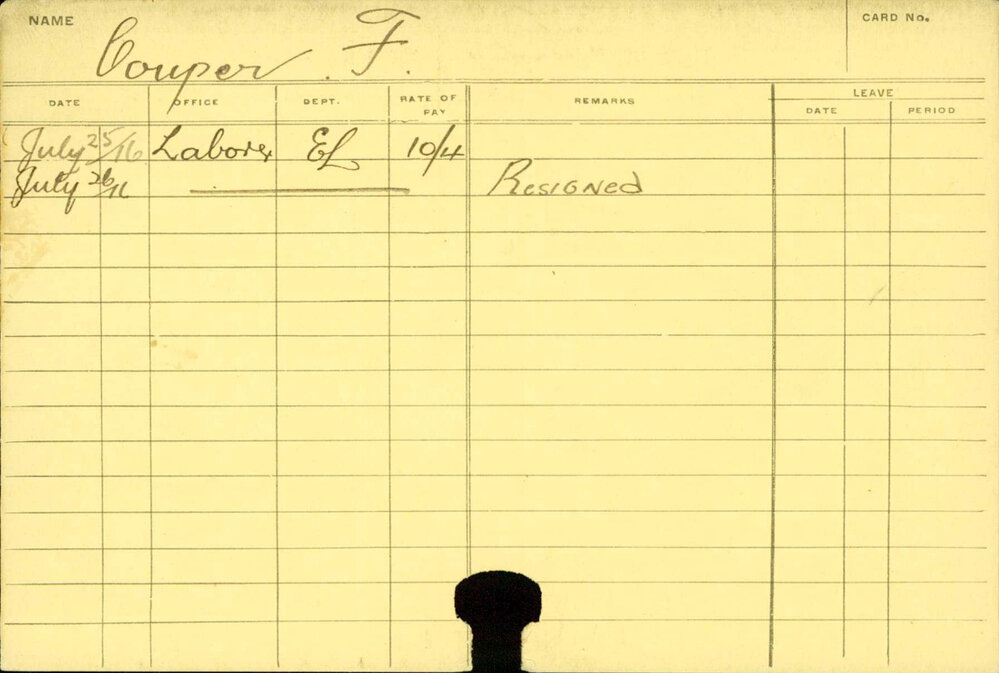 NAME
Couper. F.
CARD No.
DATE OFFICE DEPT. RATE OF PAY REMARKS LEAVE
DATE PERIOD
July 25/16 Laborer EL 10/4
July 26/16 Resigned